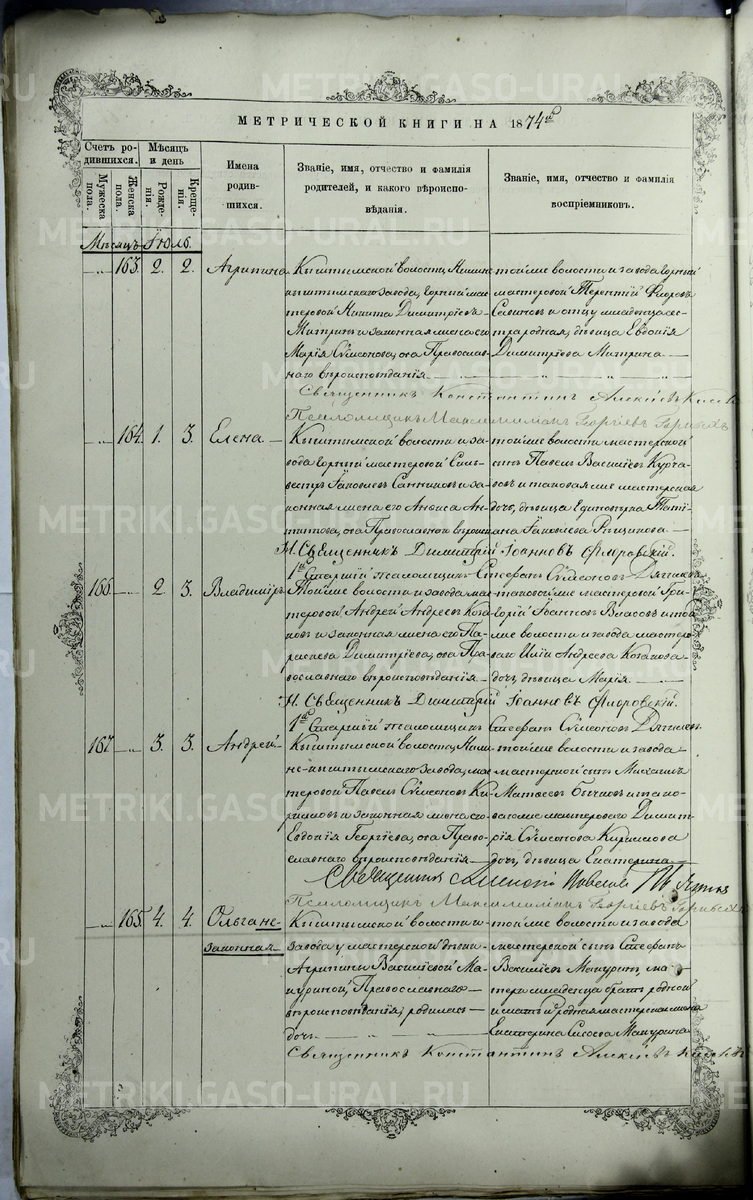 МЕТРИЧЕСКОЙ КНИГИ НА 1874й
Счетъ родившихся.
Мѣсяцъ и день
Мужеска пола.
Женска пола.
Рожденія.
Крещенія.
Имена родившихся.
Званіе, имя, отчество и фамилія родителей, и какого вѣроисповѣданія.
Званіе, имя, отчество и фамилія воспріемниковъ.
Мѣсяцъ Іюль.
163. 2. 2. Агрипина
Кыштымской волости, Нижне
кыштымскаго завода, горный мас
теровой Никита Димитріевъ
Митринъ и законная жена его
Марія Сѵмеонова, оба Православ
наго вѣроисповѣданія
той же волости и завода горный
мастеровой Терентій Флоровъ
и отцу младенца сес
тра родная, дѣвица Евдокія
Димитріева Митрина
Священникъ Константинъ Алексіевъ
Псаломщикъ Максимиліанъ Георгіевъ
164. 1. 3. Елена
Кыштымской волости и за
вода горный мастеровой Силь
вестръ Іаковлевъ Санниковъ и за
конная жена его Анфиса Ан
типова, оба Православнаго вѣроис
той же волости мастерской
сынъ Павелъ Василіевъ Курча
вовъ и таковая же мастерская
дочь, дѣвица Единовѣрка Тать
яна Іаковлева
Н. Священникъ Димитрій Іоанновъ Флоровскій.
1й Старшій псаломщикъ Стефанъ Сѵмеоновъ Дягилевъ
166. 2. 3. Владимиръ
Той же волости и завода мас
теровой Андрей Андреевъ Коза
ковъ и законная жена его Па
раскева Димитріева, оба Пра
вославнаго вѣроисповѣданія
таковой же мастеровой Гри
горій Іоанновъ Власовъ и той
же волости и завода мастеро
ваго Иліи Андреева Козакова
дочь, дѣвица Марія
Н. Священникъ Димитрій Іоанновъ Флоровскій.
1й Старшій псаломщикъ Стефанъ Сѵмеоновъ Дягилевъ
167 3. 3. Андрей
Кыштымской волости, Ниж
не-кыштымскаго завода, мас
теровой Павелъ Сѵмеоновъ Ки
рилловъ и законная жена его
Евдокія Георгіева, оба Право
славнаго вѣроисповѣданія
той же волости и завода
мастерской сынъ Михаилъ
Матѳеевъ Бычковъ и тако
ваго же мастероваго Димит
рія Сѵмеонова Кириллова
дочь, дѣвица Екатерина
Священникъ Алексій
Псаломщикъ Максимиліанъ Георгіевъ
165. 4. 4. Ольга не-
законная
Кыштымской волости и
завода у мастерской дѣвки
Агрипины Василіевой Ма
журиной, Православнаго
вѣроисповѣданія, родилась
дочь
той же волости и завода
мастерской сынъ Стефанъ
Василіевъ Мажуринъ, ма
тери младенца братъ родной
и мать ея родная мастерская жена
Екатерина Сисоева Мажурина
Священникъ Константинъ Алексіевъ
METRIKI.GASO-URAL.RU